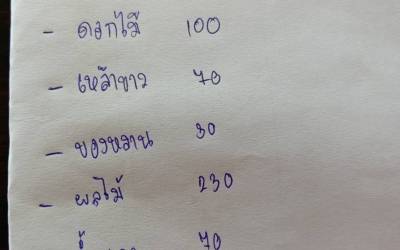 - ดอกไม้ 100
- เหล้าขาว 70
- ของหวาน 30
- ผลไม้ 230
70